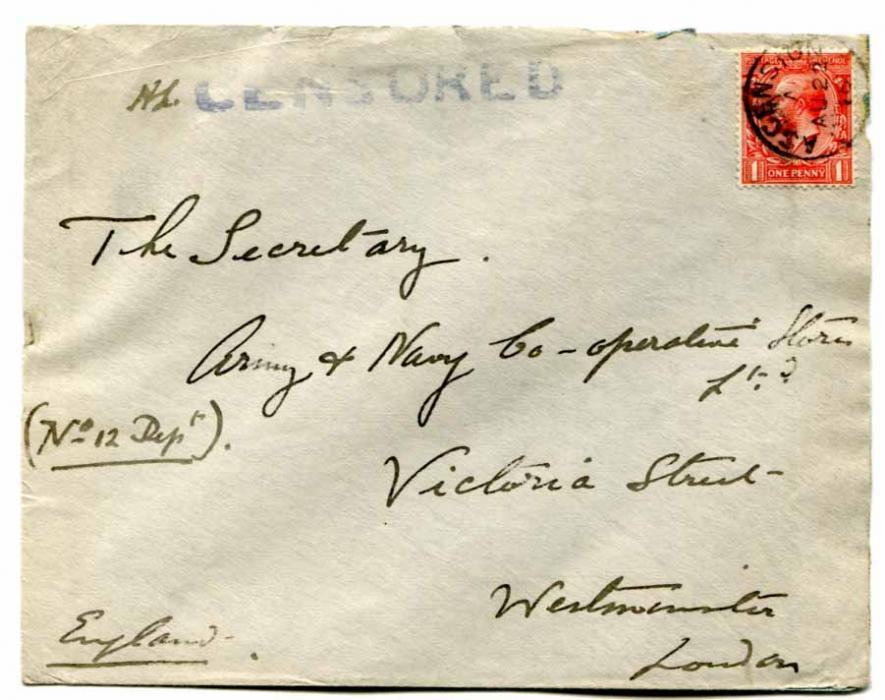 H.L. CENSORED
ASCENSION
A
AU 22
ONE PENNY
1 1
The Secretary.
Army & Navy Co-operative Stores
Ltd.
(No 12 Dept).
Victoria Street
Westminster
London
England.